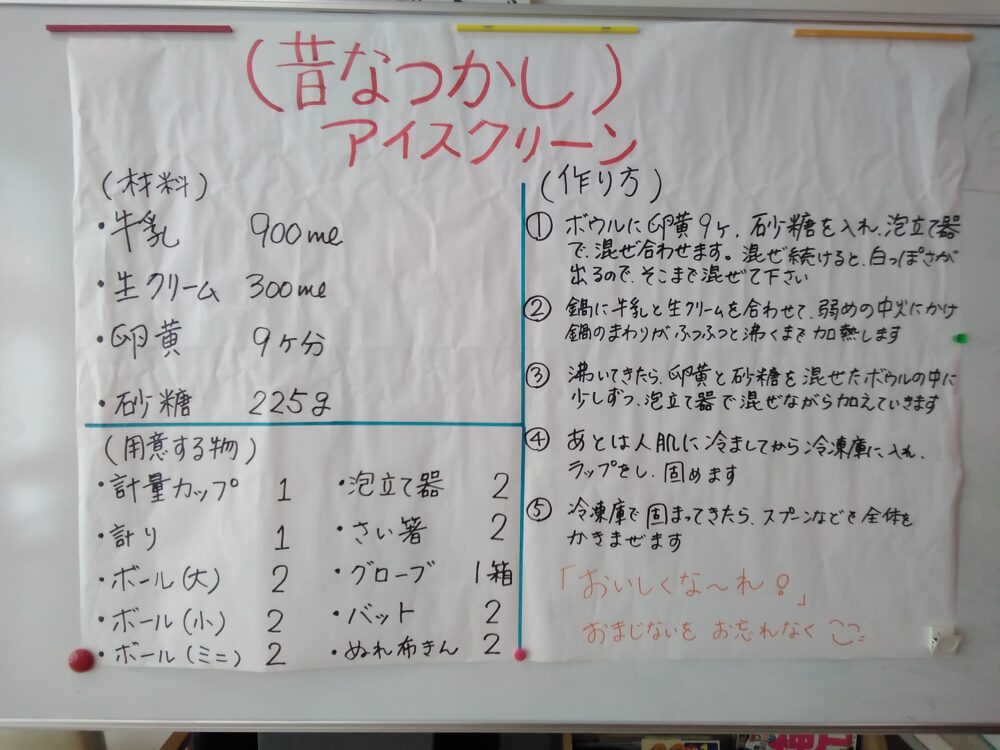 (昔なつかし)
アイスクリーン
(材料)
・牛乳 900ml
・生クリーム 300ml
・卵黄 9ヶ分
・砂糖 225g
(用意する物)
・計量カップ 1
・計り 1
・ボール(大) 2
・ボール(小) 2
・ボール(ミニ) 2
・泡立て器 2
・さい箸 2
・グローブ 1箱
・バット 2
・ぬれ布きん 2
(作り方)
① ボウルに卵黄9ヶ、砂糖を入れ、泡立て器
で、混ぜ合わせます。混ぜ続けると、白っぽさが
出るので、そこまで混ぜて下さい
② 鍋に牛乳と生クリームを合わせて、弱めの中火にかけ
鍋のまわりがふつふつと沸くまで加熱します
③ 沸いてきたら、卵黄と砂糖を混ぜたボウルの中に
少しずつ、泡立て器で混ぜながら加えていきます
④ あとは人肌に冷ましてから冷凍庫に入れ、
ラップをし、固めます
⑤ 冷凍庫で固まってきたら、スプーンなどで全体を
かきまぜます
「おいしくな〜れ!」
おまじないをお忘れなく